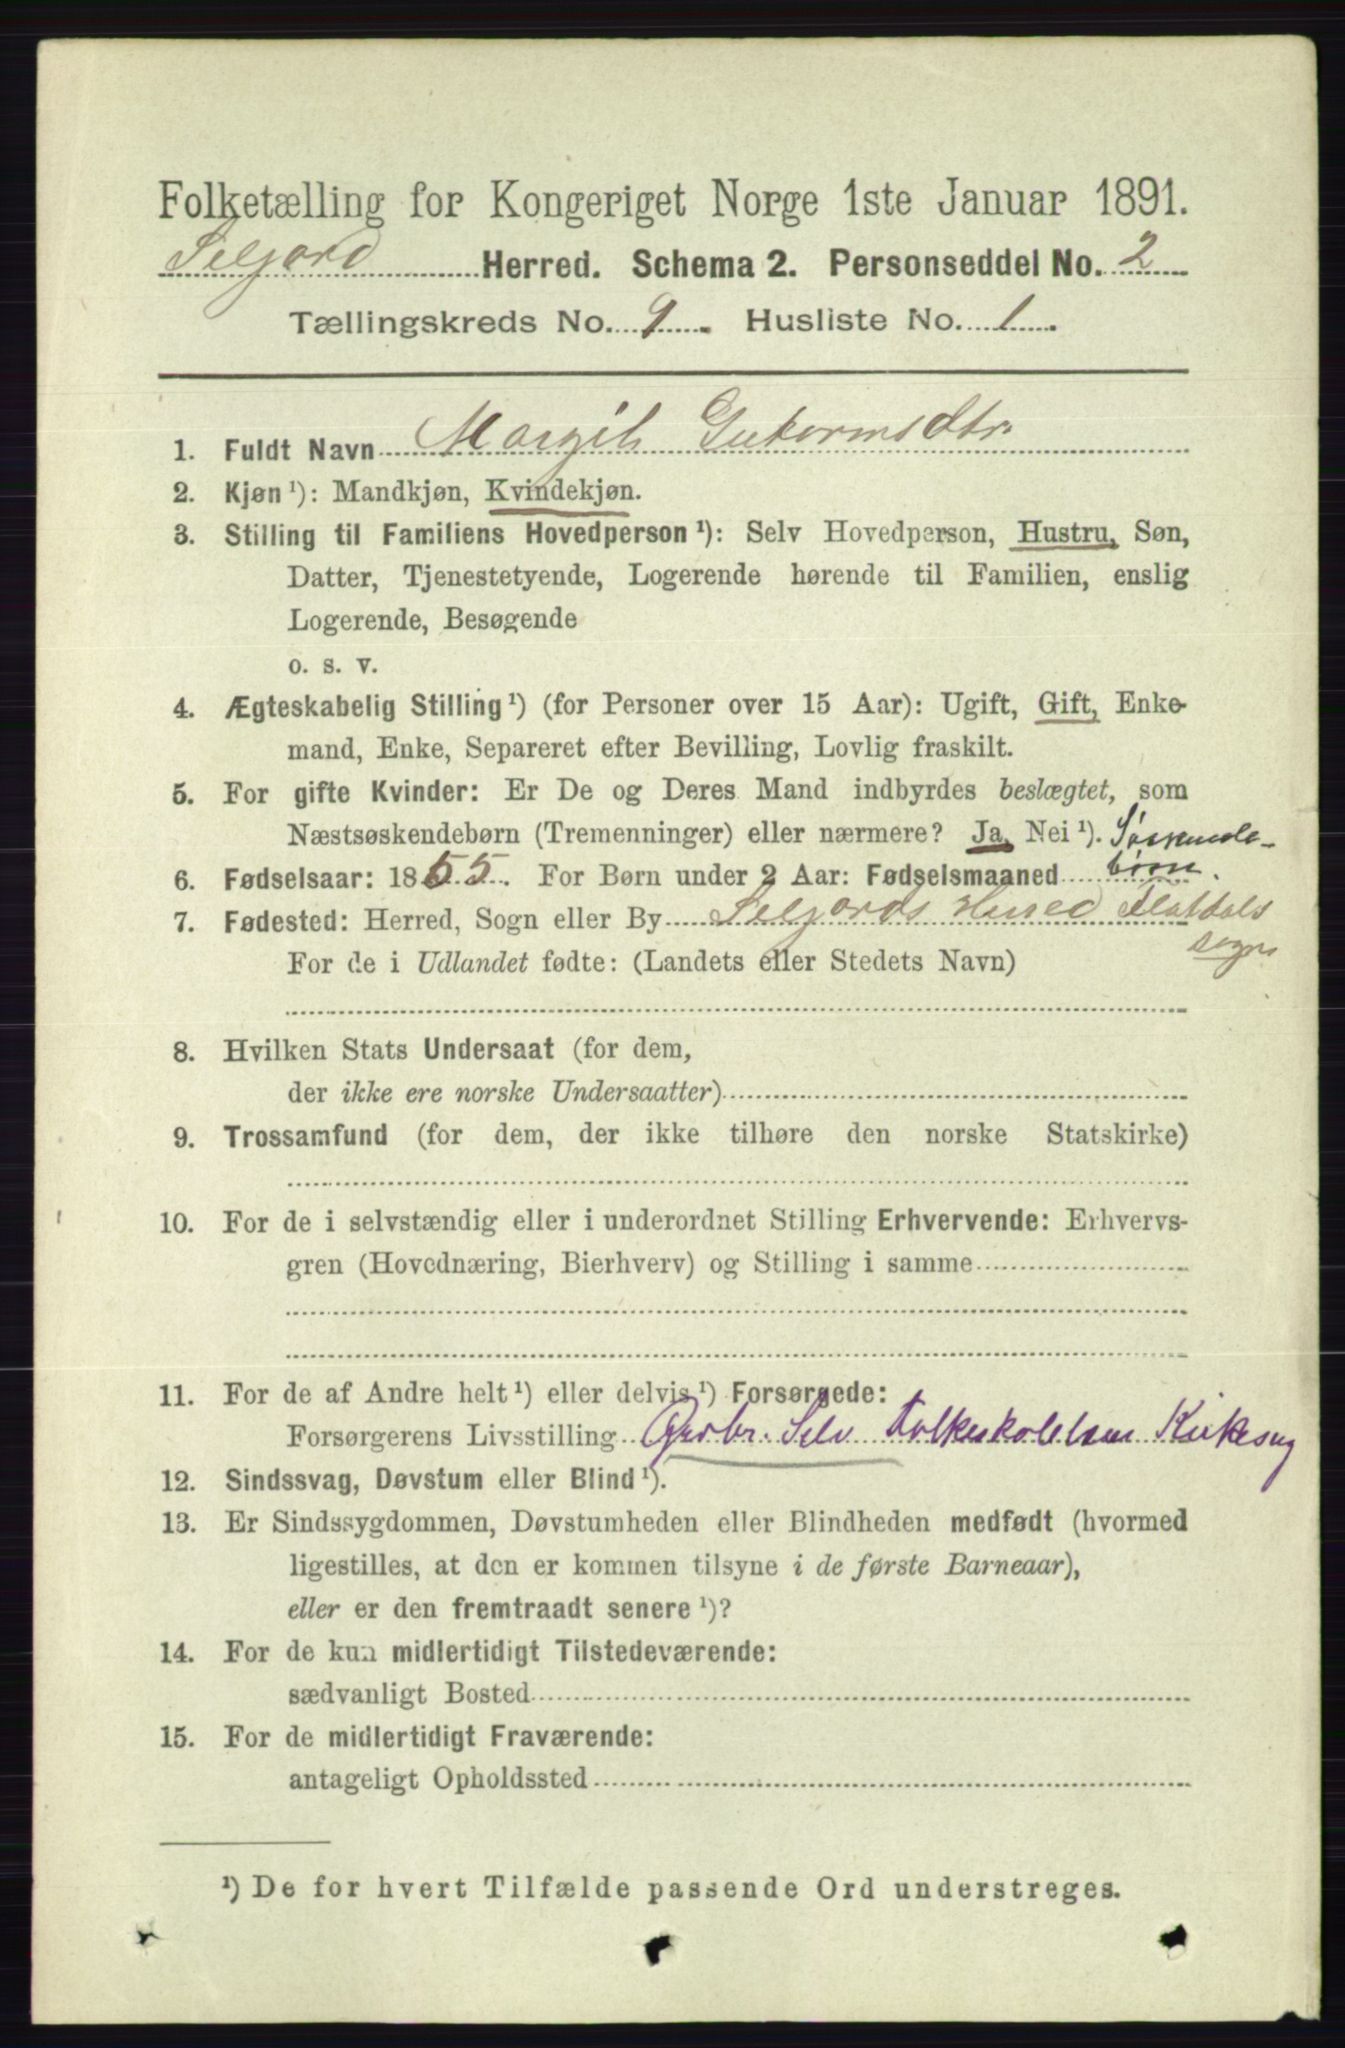 Folketælling for Kongeriget Norge 1ste Januar 1891.
Seljord Herred. Schema 2. Personseddel No. 2
Tællingskreds No. 9. Husliste No. 1.
1. Fuldt Navn Margith Gutormsdtr.
2. Kjøn ¹): Mandkjøn, Kvindekjøn.
3. Stilling til Familiens Hovedperson ¹): Selv Hovedperson, Hustru, Søn,
Datter, Tjenestetyende, Logerende hørende til Familien, enslig
Logerende, Besøgende
o. s. v.
4. Ægteskabelig Stilling ¹) (for Personer over 15 Aar): Ugift, Gift, Enke-
mand, Enke, Separeret efter Bevilling, Lovlig fraskilt.
5. For gifte Kvinder: Er De og Deres Mand indbyrdes beslægtet, som
Næstsøskendebørn (Tremenninger) eller nærmere? Ja, Nei ¹). Søskende-
børn.
6. Fødselsaar: 1855. For Børn under 2 Aar: Fødselsmaaned
7. Fødested: Herred, Sogn eller By Seljords Herred Flatdals
sogn
For de i Udlandet fødte: (Landets eller Stedets Navn)
8. Hvilken Stats Undersaat (for dem,
der ikke ere norske Undersaatter)
9. Trossamfund (for dem, der ikke tilhøre den norske Statskirke)
10. For de i selvstændig eller i underordnet Stilling Erhvervende: Erhvervs-
gren (Hovednæring, Bierhverv) og Stilling i samme
11. For de af Andre helt ¹) eller delvis ¹) Forsørgede:
Forsørgerens Livsstilling Gbr. Selv Folkeskolelærer Kirkesng
12. Sindssvag, Døvstum eller Blind ¹).
13. Er Sindssygdommen, Døvstumheden eller Blindheden medfødt (hvormed
ligestilles, at den er kommen tilsyne i de første Barneaar),
eller er den fremtraadt senere ¹)?
14. For de kun midlertidigt Tilstedeværende:
sædvanligt Bosted
15. For de midlertidigt Fraværende:
antageligt Opholdssted
¹) De for hvert Tilfælde passende Ord understreges.